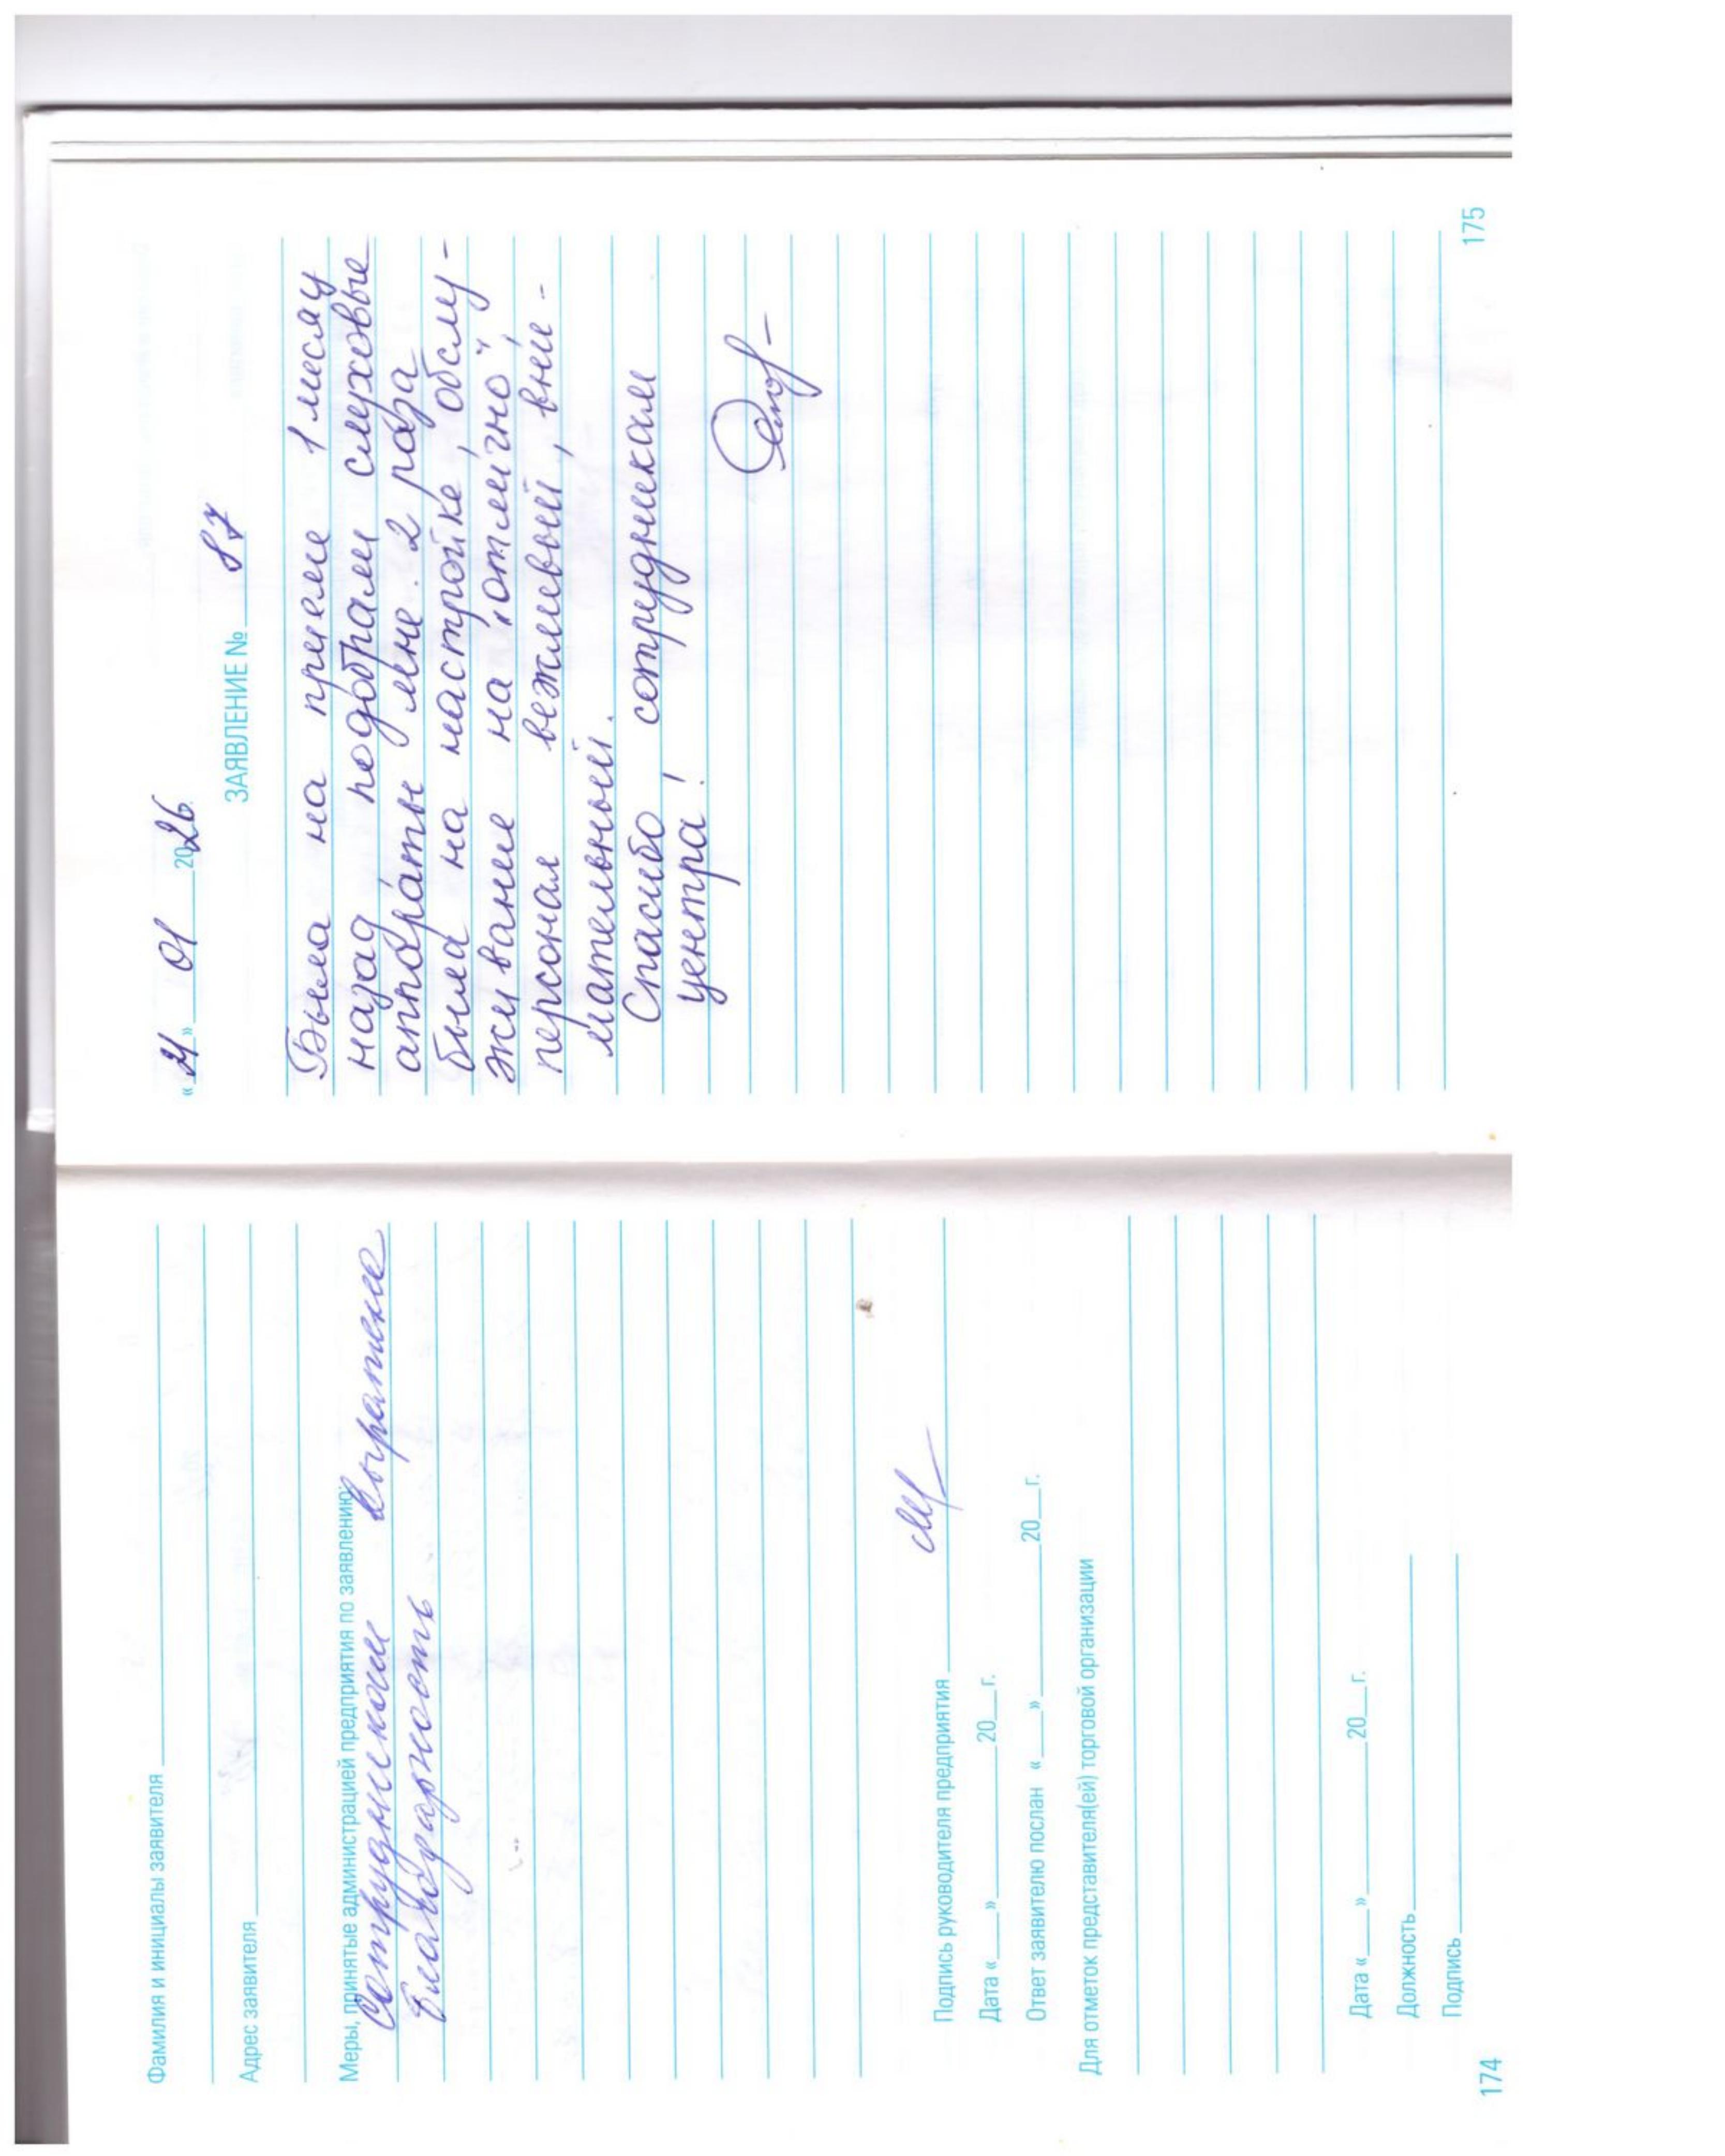 Фамилия и инициалы заявителя
Адрес заявителя
Меры, принятые администрацией предприятия по заявлению:
Сотрудникам выражена
благодарность
Подпись руководителя предприятия
Дата «___»________20__г.
Ответ заявителю послан «___»________20__г.
Для отметок представителя(ей) торговой организации
Дата «___»________20__г.
Должность
Подпись
174
«21» 01 2026
ЗАЯВЛЕНИЕ № 87
Была на приеме 1 месяц
назад подобрали слуховые
аппараты мне. 2 раза
была на настройке, обслу-
живание на „отлично",
персонал вежливый, вни-
мательный.
Спасибо, сотрудникам
центра!
175